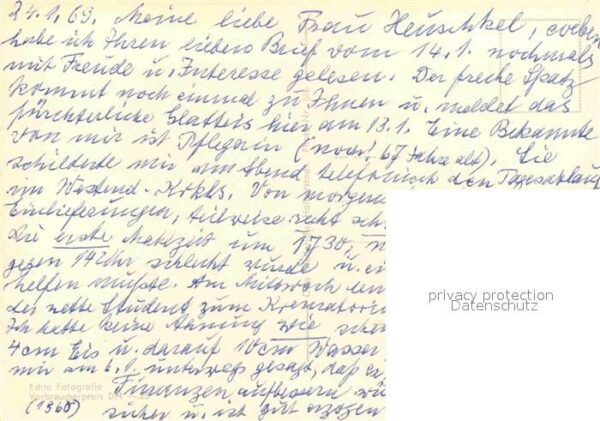 24.1.69. Meine liebe Frau Heuschkel, soeben
habe ich Ihren lieben Brief vom 14.1. nochmals
mit Freude u. Interesse gelesen. Der freche Spatz
kommt noch einmal zu Ihnen u. meldet das
fürchterliche Glatteis hier am 13.1. Eine Bekannte
von mir ist Pflegerin (noch! 67 Jahre alt). Sie
schilderte mir am Abend telefonisch den Tagesablauf
im Westend-Krkhs. Von morgens
Einlieferungen, teilweise sehr
Die erste Mahlzeit um 17.30,
gegen 14 Uhr schlecht wurde u.
helfen mußte. Am Mittwoch
der nette Student zum
Ich hatte keine Ahnung wie
4 cm Eis u. darauf 10 cm Wasser
mir am 6.1. unterwegs gesagt, daß er
Finanzen aufbessern
sicher u. ist gut erzogen
Echte Fotografie
Verbraucherpreis DM
(1960)
privacy protection
Datenschutz